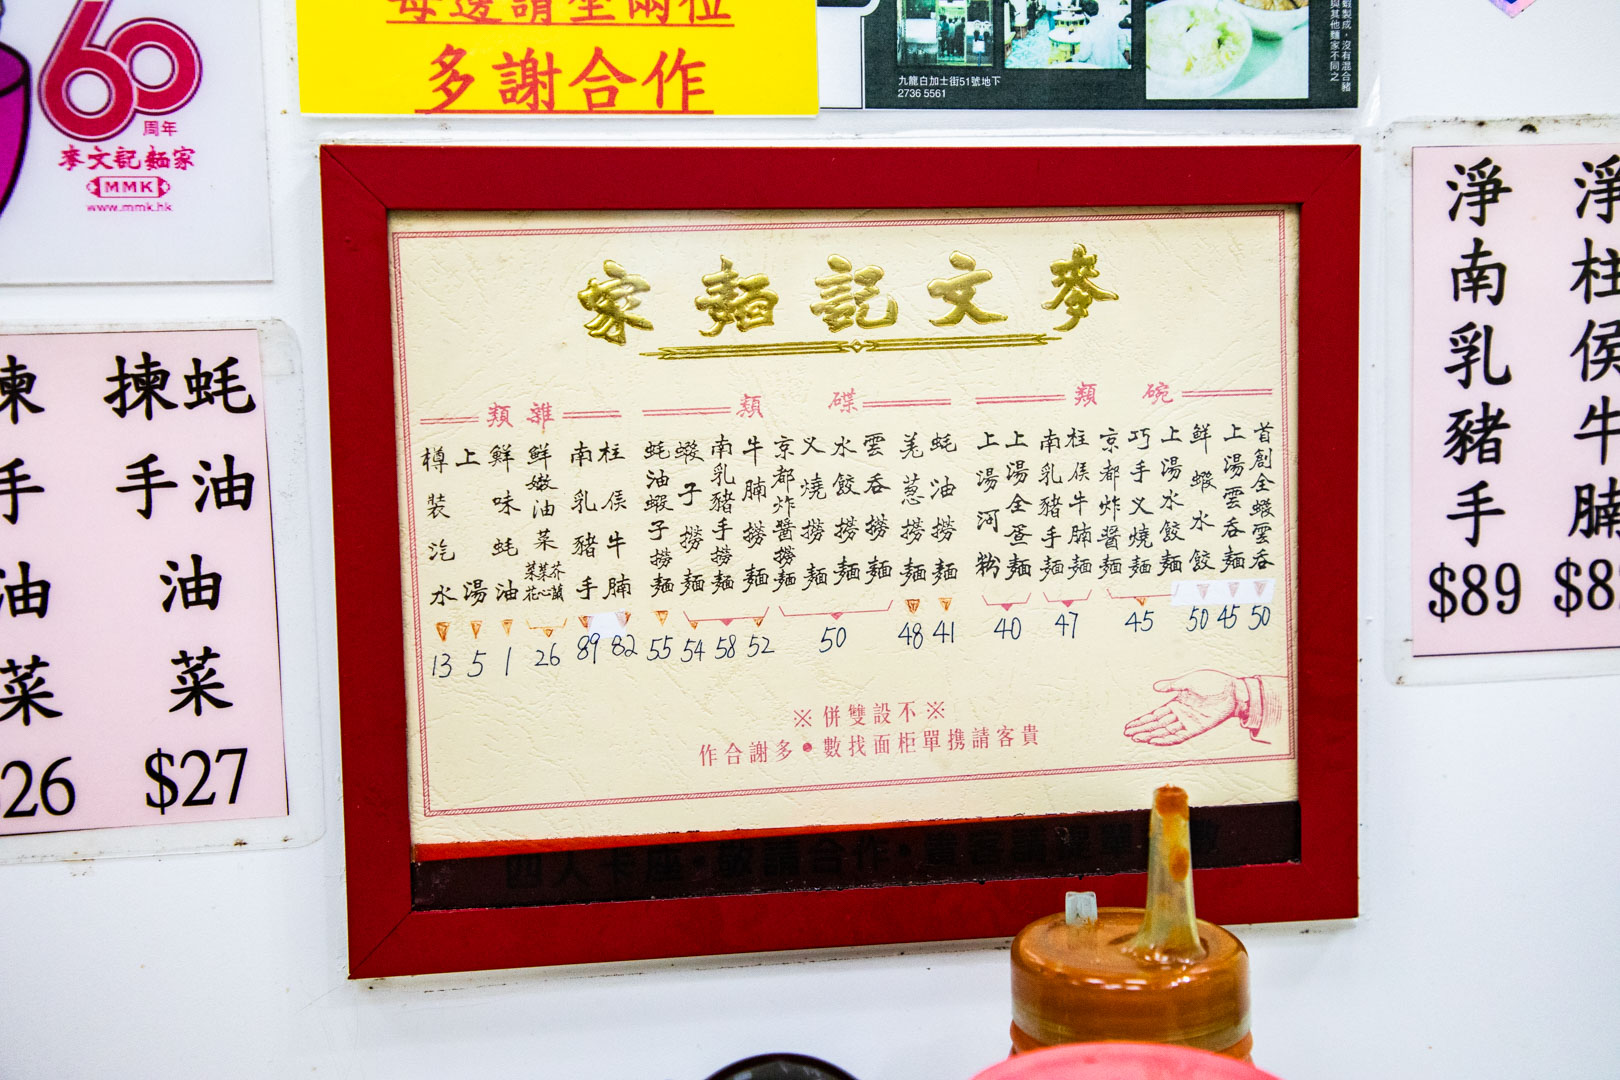 60
周年
麥文記麵家
MMK
www.mmk.hk
多謝合作
九龍白加士街51號地下
2736 5561
麥文記麵家
碗類
首創全蝦雲吞 50
上湯雲吞麵 45
鮮蝦水餃 50
上湯水餃麵
巧手叉燒麵
京都炸醬麵
45
柱侯牛腩麵
南乳豬手麵
47
上湯全蛋麵
上湯河粉
40
碟類
蚝油撈麵 41
羌葱撈麵 48
雲吞撈麵
水餃撈麵
叉燒撈麵
京都炸醬撈麵
50
牛腩撈麵 52
南乳豬手撈麵 58
蝦子撈麵 54
蚝油蝦子撈麵 55
雜類
柱侯牛腩 82
南乳豬手 89
鮮嫩油菜 26
鮮味蚝油 1
上湯 5
樽裝汽水 13
※不設雙併※
貴客請携單柜面找數•多謝合作
蚝油
揀手油菜
$27
26
淨南乳豬手
$89
淨柱侯牛腩